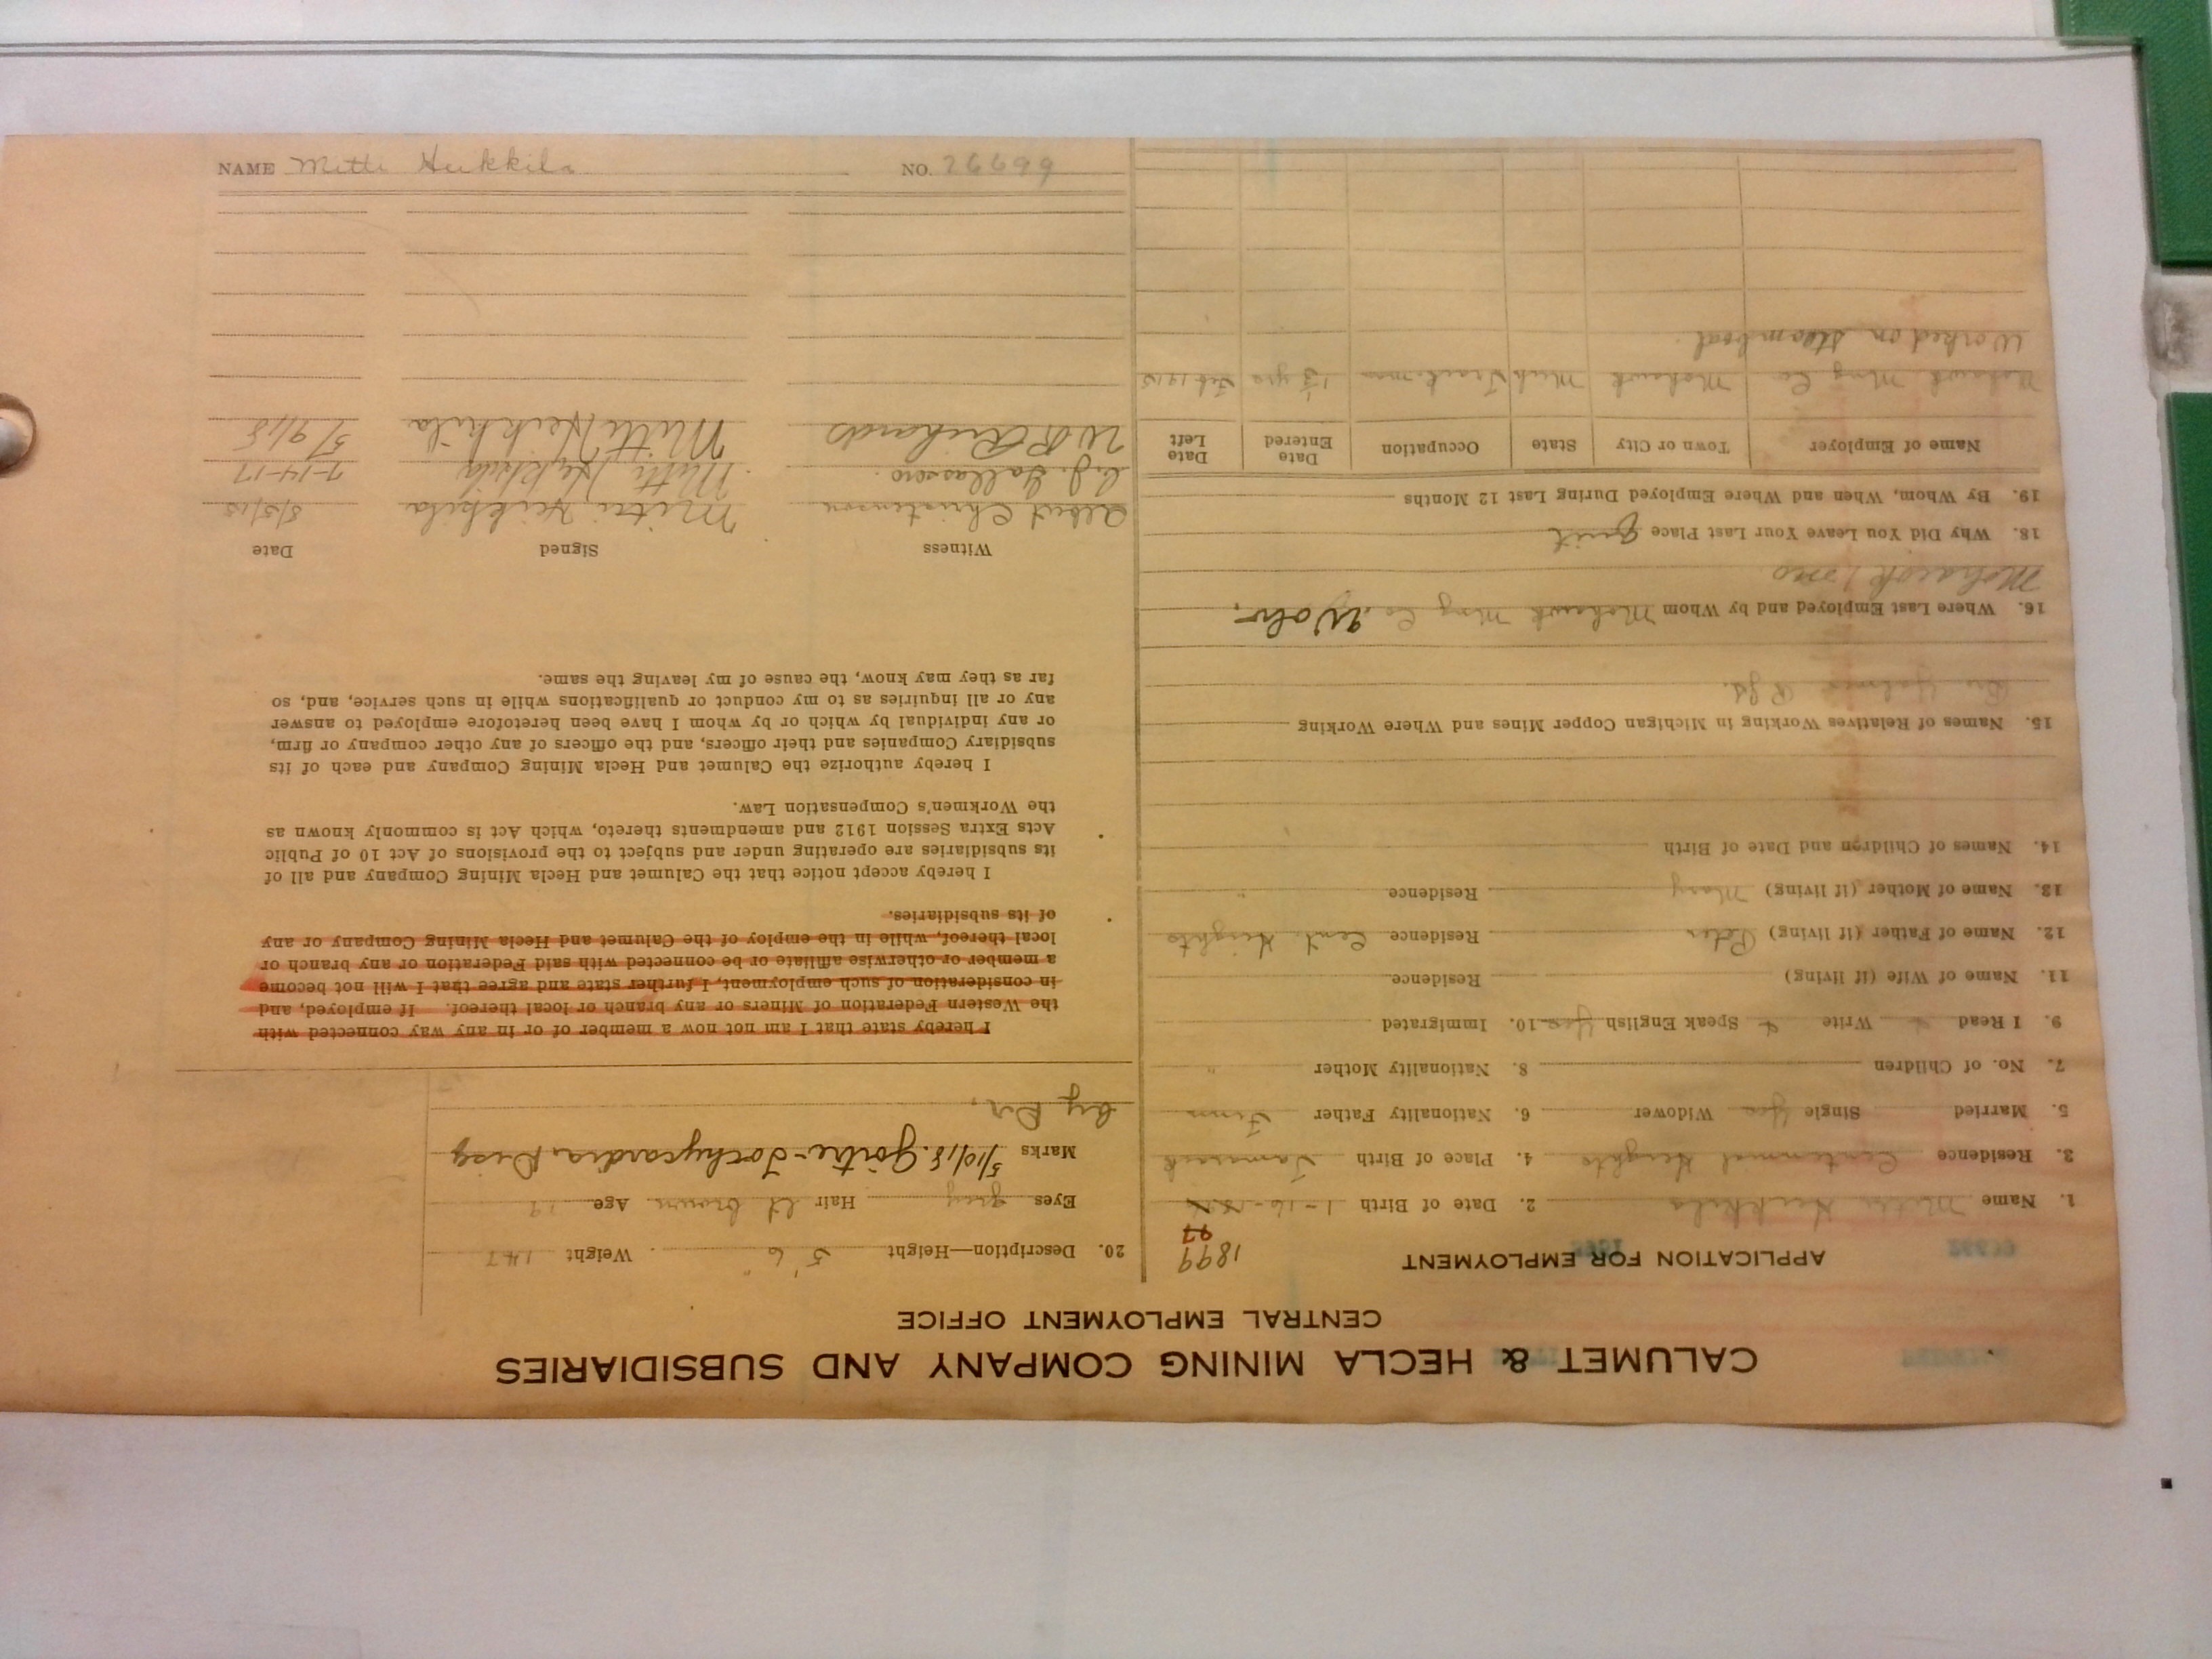 CALUMET & HECLA MINING COMPANY AND SUBSIDIARIES
CENTRAL EMPLOYMENT OFFICE
APPLICATION FOR EMPLOYMENT
1899
97
1. Name Heikkila 2. Date of Birth 1-16-
3. Residence Centennial Heights 4. Place of Birth Tamarack
5. Married Single Yes Widower 6. Nationality Father Finn
7. No. of Children 8. Nationality Mother "
9. I Read Write Speak English Yes 10. Immigrated
11. Name of Wife (if living) Residence
12. Name of Father (if living) Peter Residence Cent. Heights
13. Name of Mother (if living) Mary Residence "
14. Names of Children and Date of Birth
15. Names of Relatives Working in Michigan Copper Mines and Where Working
16. Where Last Employed and by Whom Mohawk Mng Co.
Mohawk
18. Why Did You Leave Your Last Place Quit
19. By Whom, When and Where Employed During Last 12 Months
Name of Employer Town or City State Occupation Date Entered Date Left
Mohawk Mng Co Mohawk Mich
Worked on steamboat
20. Description—Height 5' 6" Weight 147
Eyes gray Hair lt brown Age 19
Marks 5/10/18. Goitre - Tachycardia.
by Dr.
I hereby state that I am not now a member of or in any way connected with
the Western Federation of Miners or any branch or local thereof. If employed, and
in consideration of such employment, I further state and agree that I will not become
a member or otherwise affiliate or be connected with said Federation or any branch or
local thereof, while in the employ of the Calumet and Hecla Mining Company or any
of its subsidiaries.
I hereby accept notice that the Calumet and Hecla Mining Company and all of
its subsidiaries are operating under and subject to the provisions of Act 10 of Public
Acts Extra Session 1912 and amendments thereto, which Act is commonly known as
the Workmen's Compensation Law.
I hereby authorize the Calumet and Hecla Mining Company and each of its
subsidiary Companies and their officers, and the officers of any other company or firm,
or any individual by which or by whom I have been heretofore employed to answer
any or all inquiries as to my conduct or qualifications while in such service, and, so
far as they may know, the cause of my leaving the same.
Witness Signed Date
Albert Christenson Heikkila
7-14-17
W R Richards Matti Heikkila 5/9/18
NAME Heikkila NO. 26699